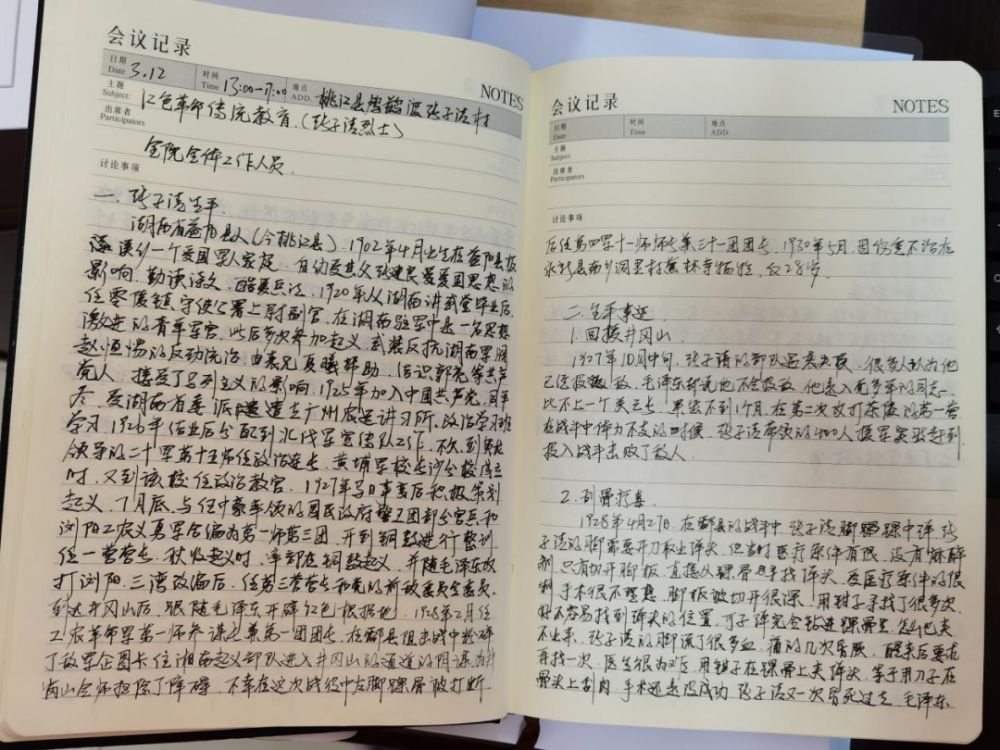 会议记录
NOTES
日期 Date 3.12 时间 Time 13:00-17:00 地点 ADD. 桃江县 张子清村
主题 Subject: 红色革命传统教育.(张子清烈士)
出席者 Participators
全院全体工作人员.
讨论事项
一、张子清生平.
湖南省益阳县人(今桃江县).1902年4月出生在益阳县板
溪乡一个爱国军人家庭.自幼受其父张建良爱国思想的
影响.勤读诗文,酷爱兵法.1920年从湖南讲武堂毕业后
任零陵镇守使公署上尉副官.在湖南驻军中是一名思想
激进的青年军官.此后多次参加起义,武装反抗湖南军阀
赵恒惕的反动统治.由表兄夏曦帮助.结识郭亮等共产
党人.接受了马列主义的影响.1925年加入中国共产党.同年
冬.受湖南省委派遣去广州农运讲习所、政治学习班
学习.1926年结业后分配到北伐军宣传队工作.不久,到贺龙
领导的二十军第十五师任政治连长.黄埔军校长沙分校成立
时.又到该校任政治教官.1927年马日事变后积极策划
起义.7月底.与伍中豪率领的国民政府警卫团部分官兵和
浏阳工农义勇军合编为第一师第三团.开到铜鼓进行整训
任一营营长.秋收起义时.率部在铜鼓起义.并随毛泽东攻
打浏阳.三湾改编后.任第三营营长和党的前敌委员会委员.
到达井冈山后.跟随毛泽东开辟红色根据地.1928年2月任
工农革命军第一师参谋长兼第一团团长.在酃县阻击战中粉碎
了敌军企图卡住湘南起义部队进入井冈山的通道的阴谋.为井
岗山会师扫除了障碍.不幸在这次战役中左脚踝骨被打断.
会议记录
NOTES
日期 Date 时间 Time 地点 ADD.
主题 Subject:
出席者 Participators
讨论事项
后任第四军十一师师长兼三十一团团长.1930年5月.因伤重不治在
永新县南乡洞里村蕉林寺牺牲,仅28岁.
二.生平事迹.
1.回援井冈山.
1927年10月中旬.张子清的部队遇袭失散.很多人认为他
已经投敌.毛泽东却说他不会投敌.他是入党多年的同志.
比不上一个关云长.果实不到1个月.在第二次攻打茶陵的第一营
在战斗中体力不支的时候.张子清带领的400人援军突然寻到
投入战斗击败了敌人.
2.刮骨疗毒
1928年4月27日.在酃县的战斗中.张子清脚踝中弹.张
子清的脚需要开刀取出弹头.但当时医疗条件有限.没有麻醉
剂.只有切开脚板.直接从踝骨里寻找弹头.受医疗条件的限
制.手术很不理想.脚板被切开很深.用钳子寻找了很多次.
好不容易找到弹头的位置.可子弹完全钻进踝骨里.怎么也夹
不出来.张子清的脚流了很多血.痛的几次昏厥.醒来后要求
再找一次.医生很为难.用钳子在踝骨上夹弹头.等于用刀子在
骨头上刮肉.手术还是没成功.张子清又一次昏死过去.毛泽东